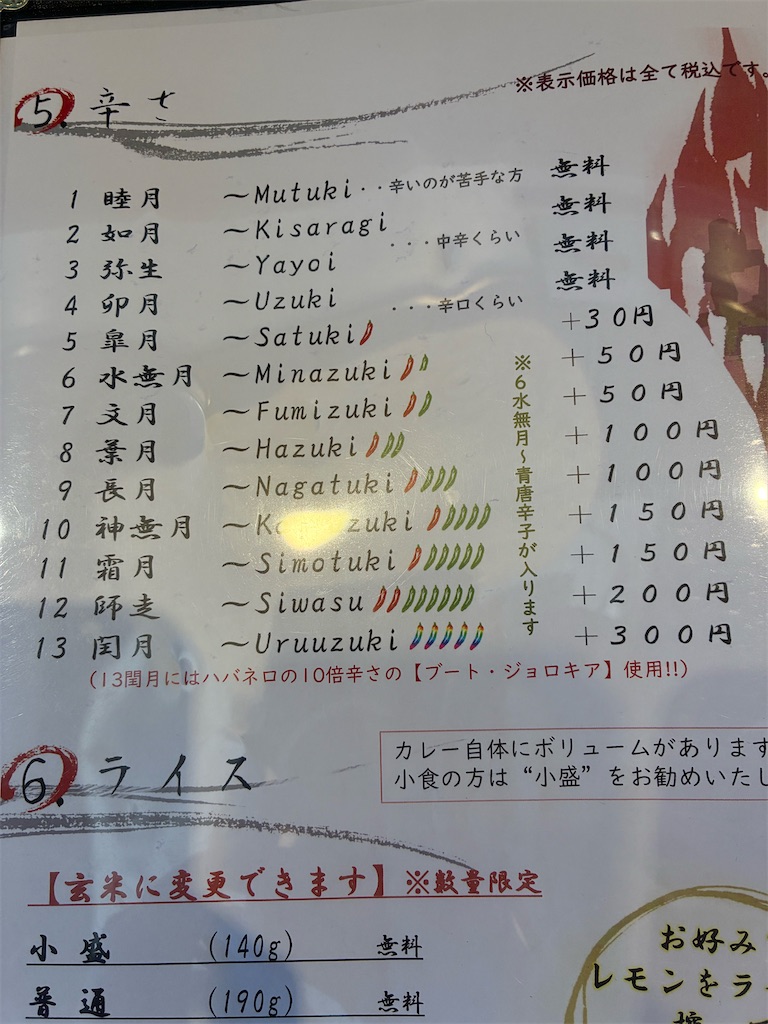 ※表示価格は全て税込です。
5. 辛さ
1 睦月 ～Mutuki・・辛いのが苦手な方 無料
2 如月 ～Kisaragi 無料
3 弥生 ～Yayoi ・・・中辛くらい 無料
4 卯月 ～Uzuki ・・・辛口くらい 無料
5 皐月 ～Satuki +30円
6 水無月 ～Minazuki +50円
7 文月 ～Fumizuki +50円
8 葉月 ～Hazuki +100円
9 長月 ～Nagatuki +100円
10 神無月 ～K zuki +150円
11 霜月 ～Simotuki +150円
12 師走 ～Siwasu +200円
13 閏月 ～Uruuzuki +300円
※6水無月～青唐辛子が入ります
(13閏月にはハバネロの10倍辛さの【ブート・ジョロキア】使用!!)
6. ライス
カレー自体にボリュームがあります
小食の方は“小盛”をお勧めいたし
【玄米に変更できます】※数量限定
小盛 (140g) 無料
普通 (190g) 無料
お好み
レモンをラ